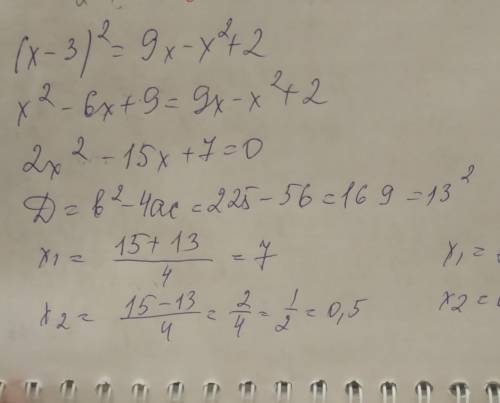 (x-3)² = 9x - x² + 2
x² - 6x + 9 = 9x - x² + 2
2x² - 15x + 7 = 0
Д = b² - 4ac = 225 - 56 = 169 = 13²
x₁ = (15 + 13)/4 = 7 x₁ =
x₂ = (15 - 13)/4 = 2/4 = 1/2 = 0,5 x₂ =